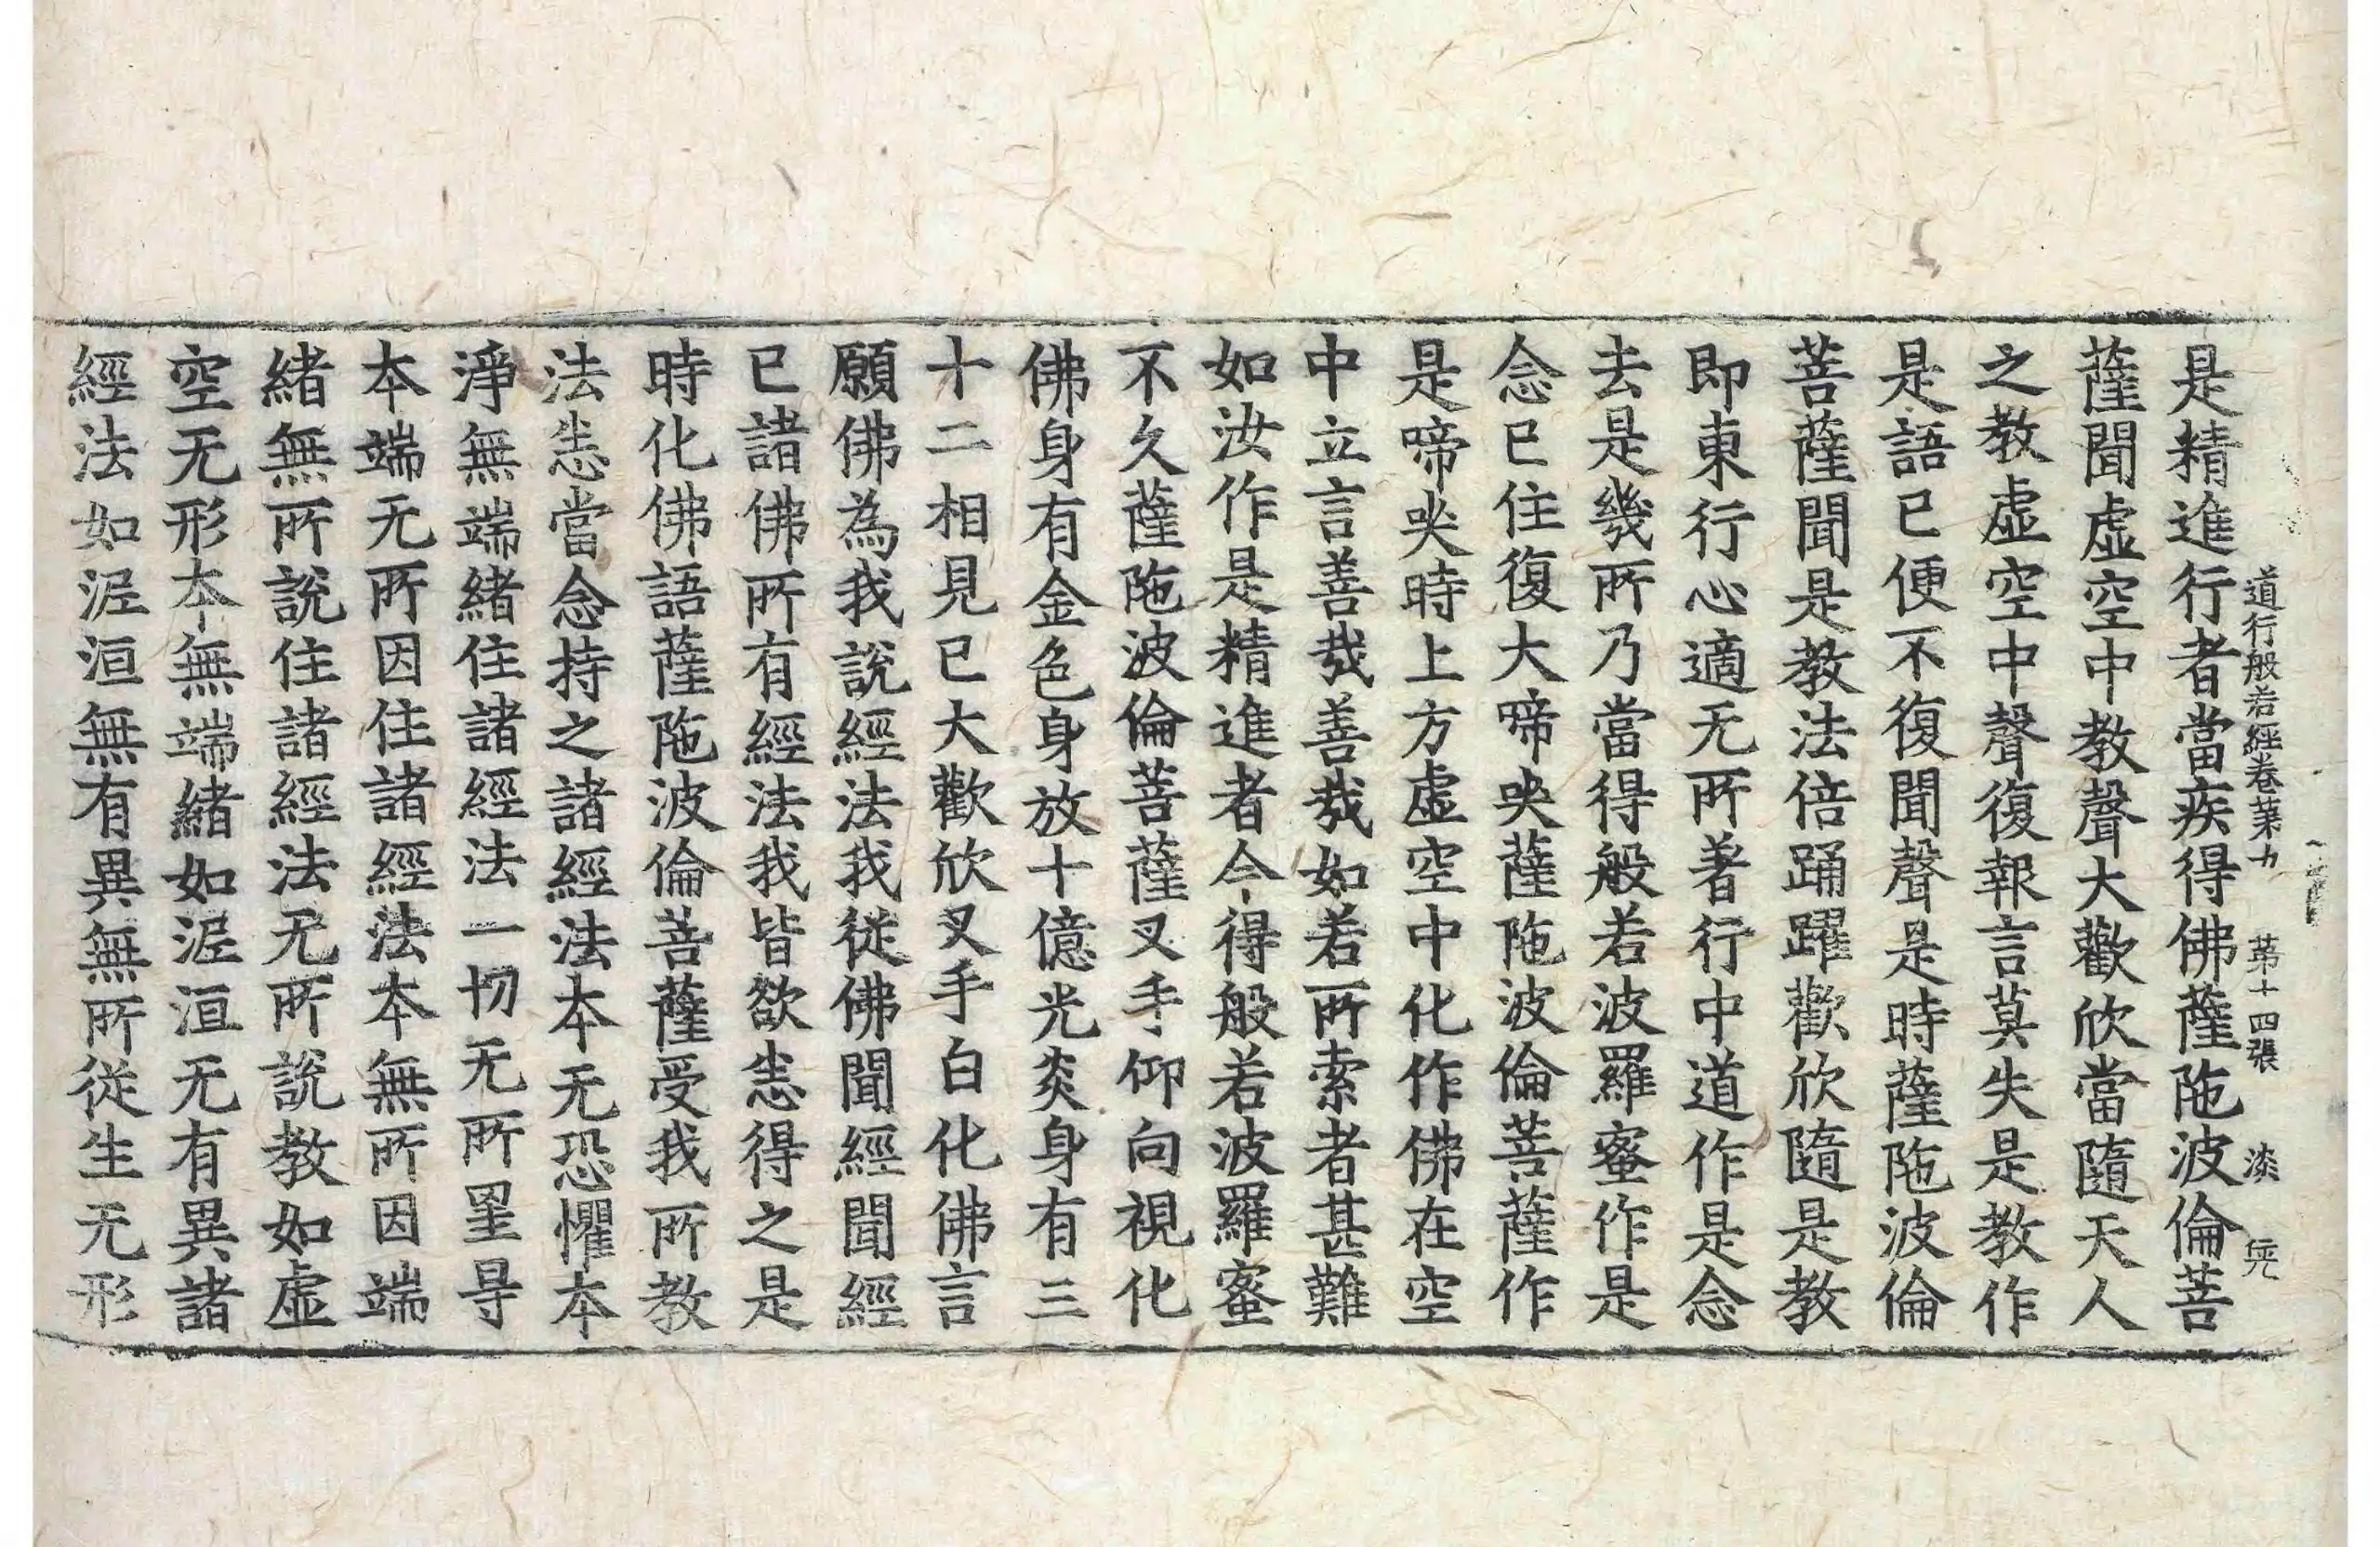 道行般若經卷第九 第十四張 淡
是精進行者當疾得佛薩陁波倫菩
薩聞虛空中教聲大歡欣當隨天人
之教虛空中聲復報言莫失是教作
是語已便不復聞聲是時薩陁波倫
菩薩聞是教法倍踊躍歡欣隨是教
即東行心適无所著行中道作是念
去是幾所乃當得般若波羅蜜作是
念已住復大啼哭薩陁波倫菩薩作
是啼哭時上方虛空中化作佛在空
中立言善㢤善㢤如若所索者甚難
如汝作是精進者今得般若波羅蜜
不久薩陁波倫菩薩叉手仰向視化
佛身有金色身放十億光炎身有三
十二相見已大歡欣叉手白化佛言
願佛為我說經法我從佛聞經聞經
已諸佛所有經法我皆欲悉得之是
時化佛語薩陁波倫菩薩受我所教
法悉當念持之諸經法本无恐懼本
淨無端緒住諸經法一切无所罣㝵
本端无所因住諸經法本無所因端
緒無所說住諸經法无所說教如虛
空无形本無端緒如泥洹无有異諸
經法如泥洹無有異無所從生无形